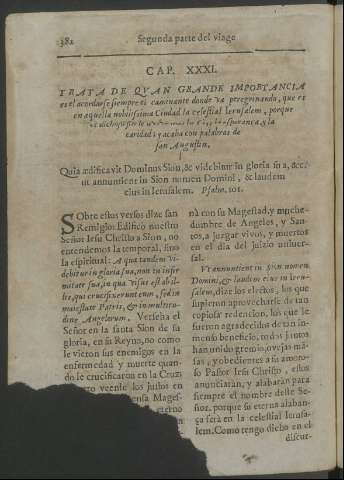 382 Segunda parte del viage
CAP. XXXI.
TRATA DE QVAN GRANDE IMPORTANCIA
es el acordarse siempre el caminante donde va peregrinando, que es
en aquella nobilissima Ciudad la celestial Ierusalem, porque
la esperança, y la
caridad: y acaba con palabras de
san Augustin.
Quia ædificavit Dominus Sion, & videbitur in gloria sua,
ut annuntient in Sion nomen Domini, & laudem
eius in Ierusalem. Psalm. 101.
SObre estus versos dize san
Remigio: Edificò nuestro
Señor Iesu Christo a Sion, no
entendemos la temporal, sino
la espiritual: A qua tandem vi-
debitur in gloria sua, non in infir
mitate sua, in qua visus est abil-
le, qui crucifixerunt eum, sed in
maiestate Patris, & in multitu-
dine Angelorum. Verseha el
Señor en la santa Sion de su
gloria, en su Reyno, no como
le vieron sus enemigos en la
enfermedad y muerte quan-
do le crucificaron en la Cruz
veenle los justos en
Mages-
eterno
nà con su Magestad, y muche-
dumbre de Angeles, y San-
tos, a juzgar vivos, y muertos
en el dia del juizio univer-
sal.
Vt annuntient in Sion nomen
Domini, & laudem eius in Ieru-
salem, dize los electos, los que
supieron aprovecharse de tan
copiosa redencion, los que le
fueron agradecidos de tan in-
menso beneficio, todos juntos
han unido gremio, ovejas mã-
sas, y obedientes a su amoro-
so Pastor Iesu Christo, ellos
anunciaràn, y alabaràn para
siempre el nombre deste Se-
ñor, porque su eterna alaban-
ça serà en la celestial Ierusa-
lem. Como tengo dicho en el
discur-